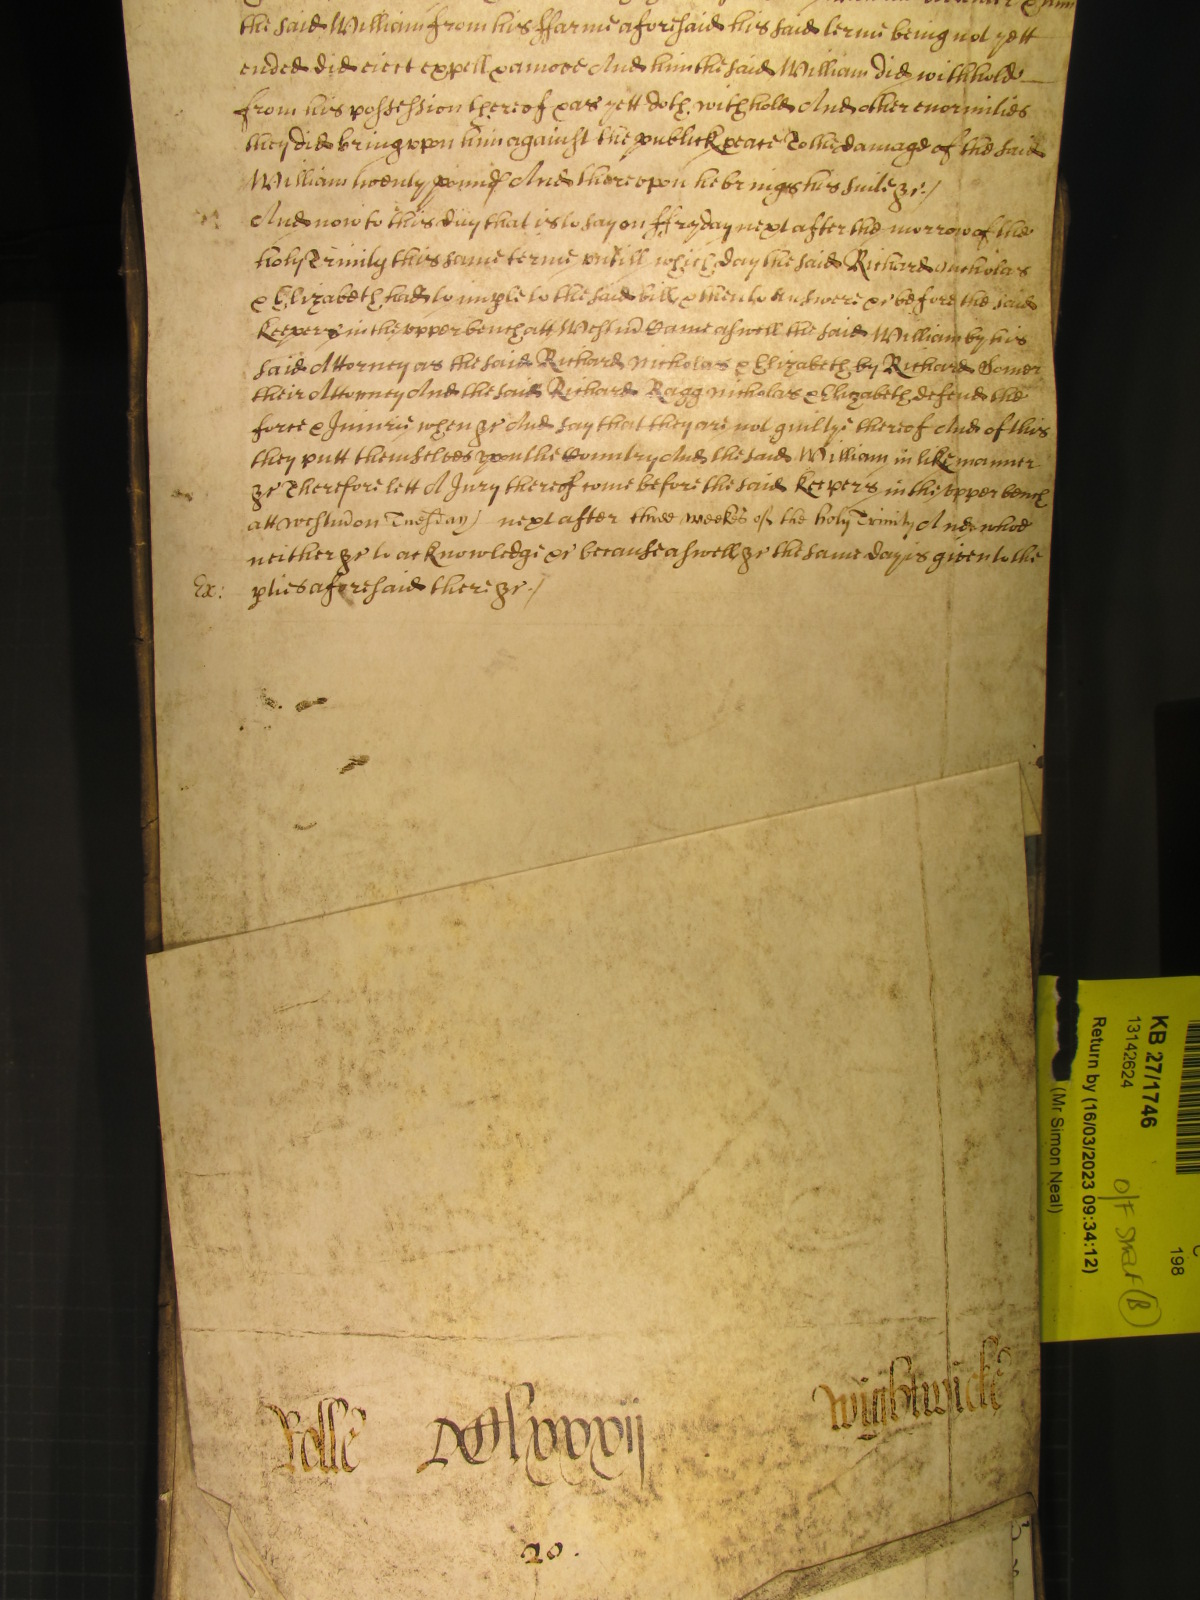 the said William from his ffarme aforesaid his said terme being not yett
ended did eiect expell & amove And him the said William did withhold
from his possession thereof & as yett doth withhold And other enormities
they did bring vpon him against the publick peace To the damage of the said
William twenty pounds And thereupon he brings his suite &c:/
And now to this day that is to say on ffryday next after the morrow of the
holy Trinity this same terme vntill which day the said Richard Nicholas
& Elizabeth had to imple to the said bill & then to Answere &c before the said
Keepers in the vpper bench att Westm̃ Came aswell the said William by his
said Attorney as the said Richard Nicholas & Elizabeth by Richard Comer
their Attorney And the said Richard Ragg Nicholas & Elizabeth defend the
force & Iniurie when &c And say that they are not guiltye thereof And of this
they putt themselves vpon the Country And the said William in like manner
&c Therefore lett A Jury thereof come before the said Keepers in the vpper bench
att Westm̃ on Tuesday/ next after three weekes of the holy Trinity And whoe
neither &c to acknowledge &c because aswell &c the same day is given to the
Ex: pties aforesaid there &c./
Rolle Wightwicke
20.
KB 27/1746
13142624
Return by (16/03/2023 09:34:12)
(Mr Simon Neal)
C
198
O/F
B